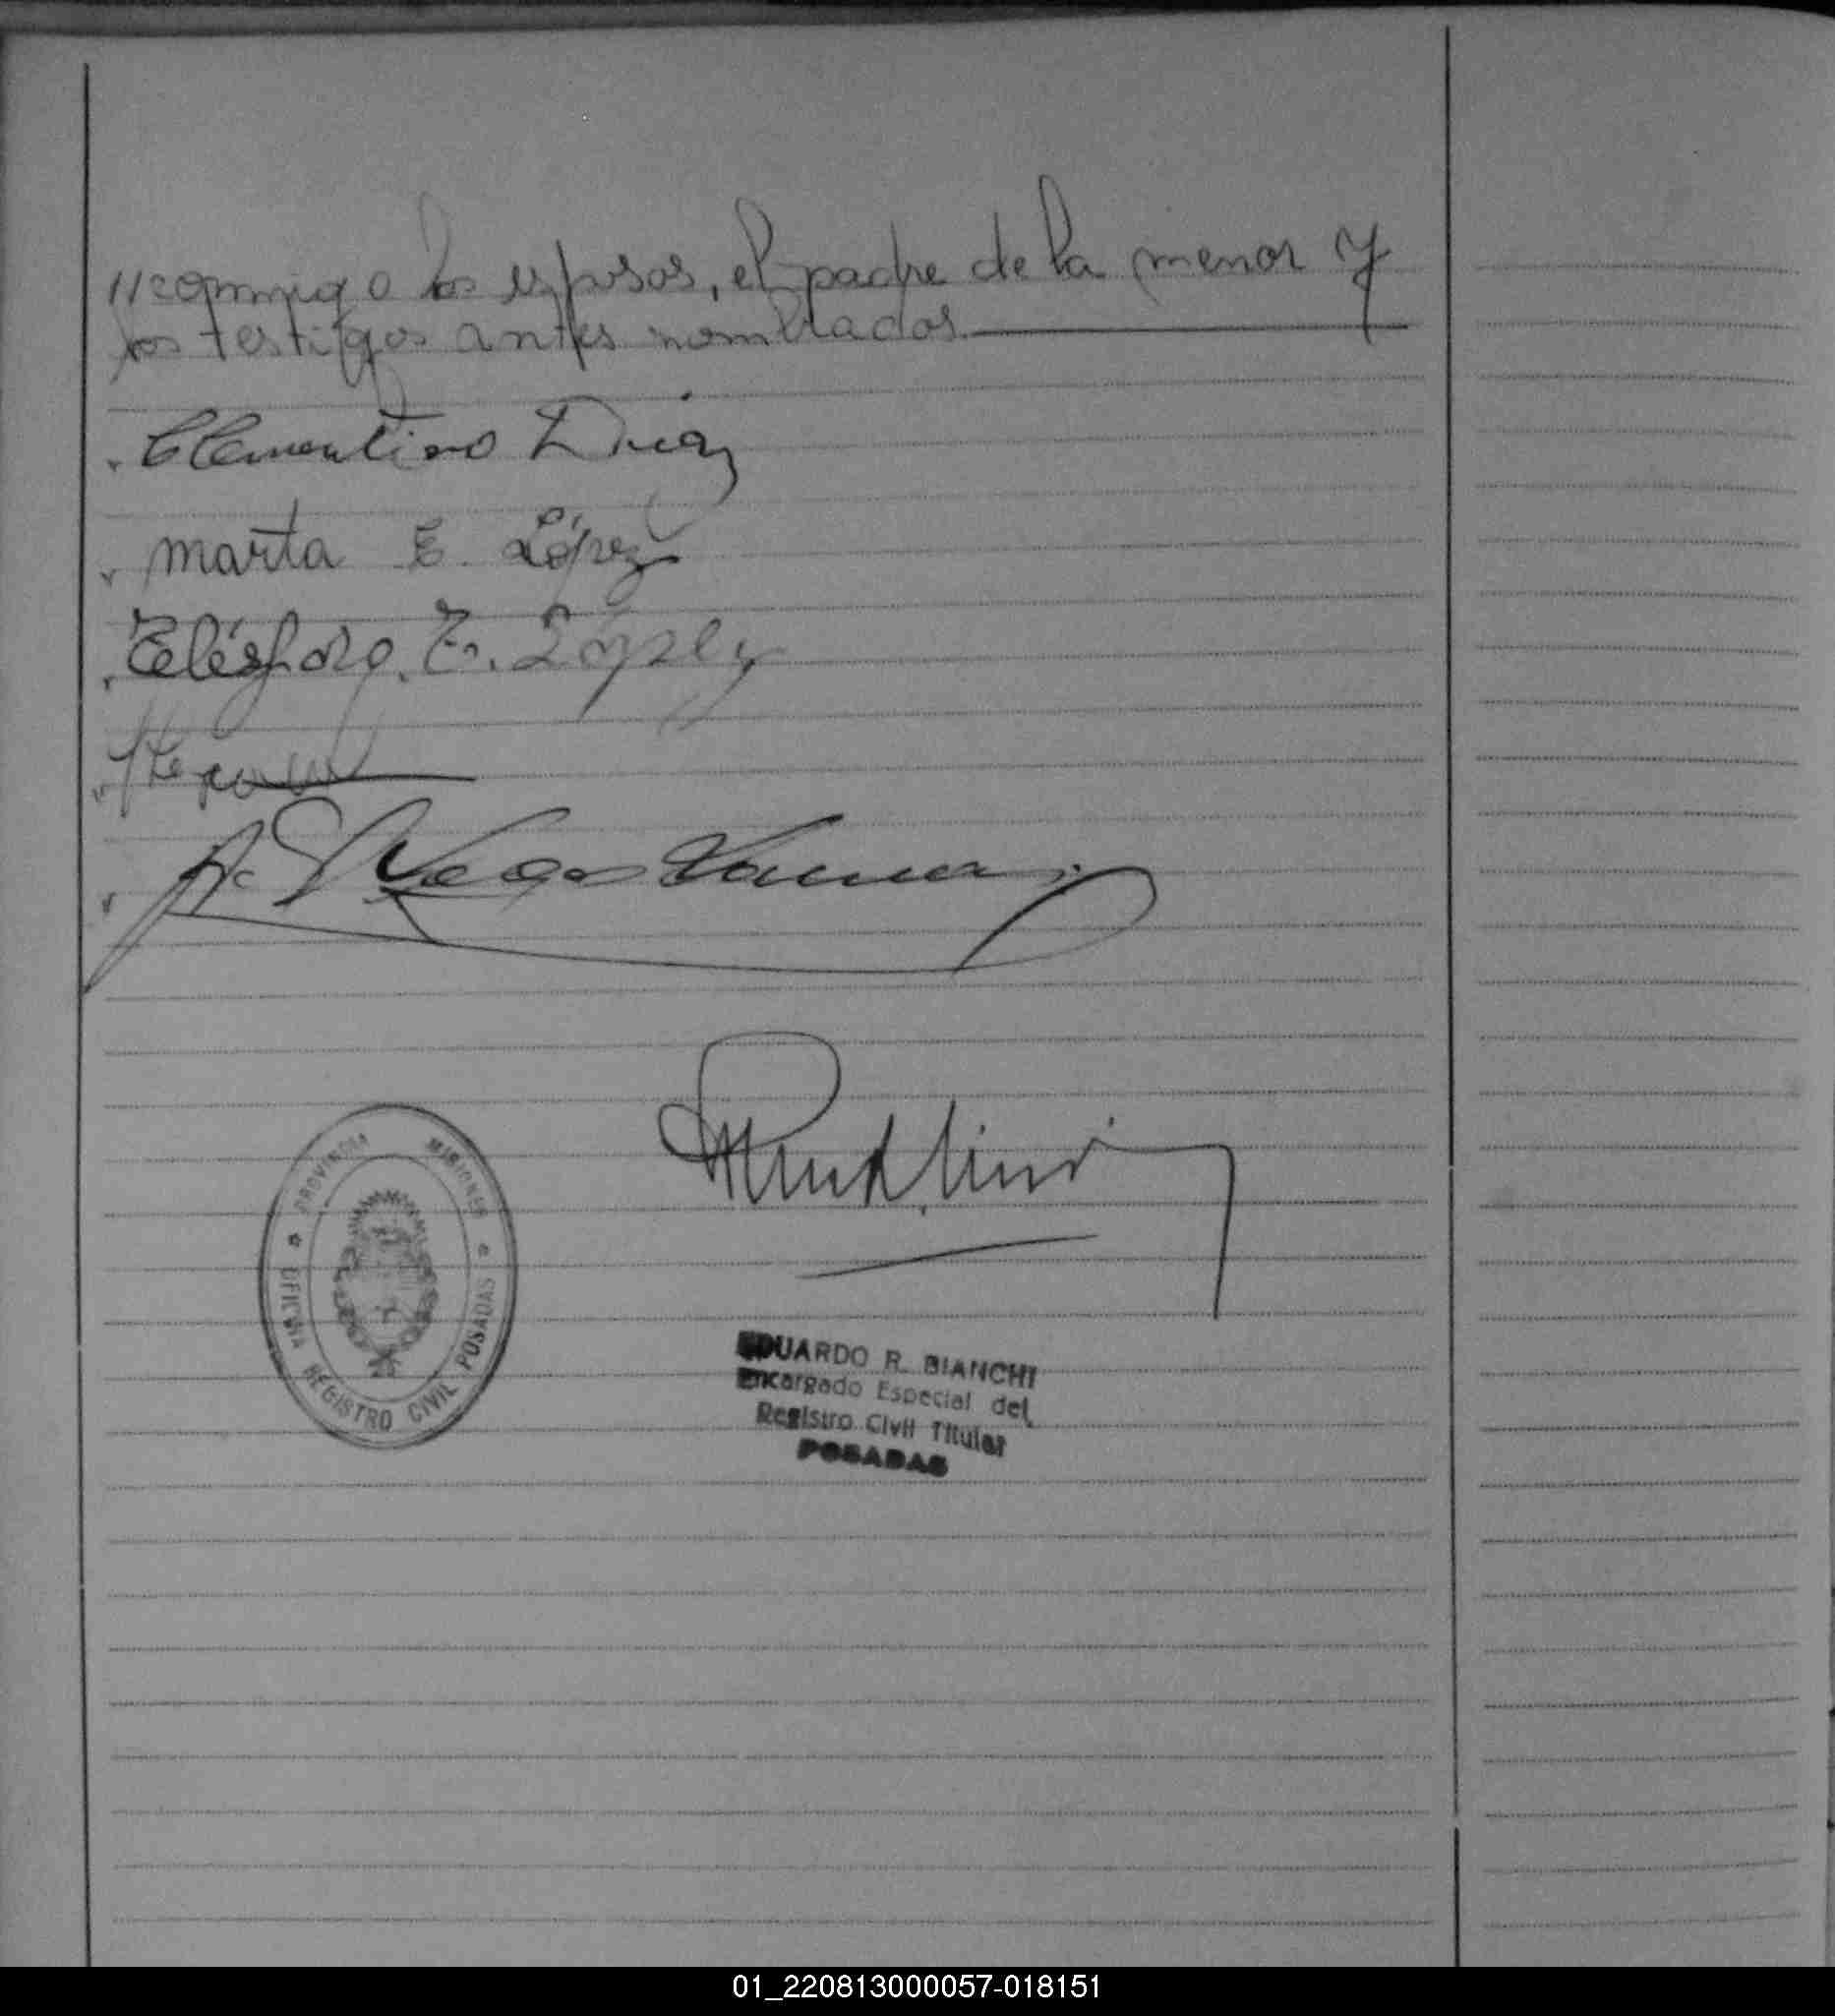 //conmigo los esposos, el padre de la menor y
los testigos antes nombrados.
Clementino Diaz
Marta E. López
Telésforo. E. López
PROVINCIA MISIONES
OFICINA REGISTRO CIVIL POSADAS
EDUARDO R. BIANCHI
Encargado Especial del
Registro Civil Titular
POSADAS
01_220813000057-018151